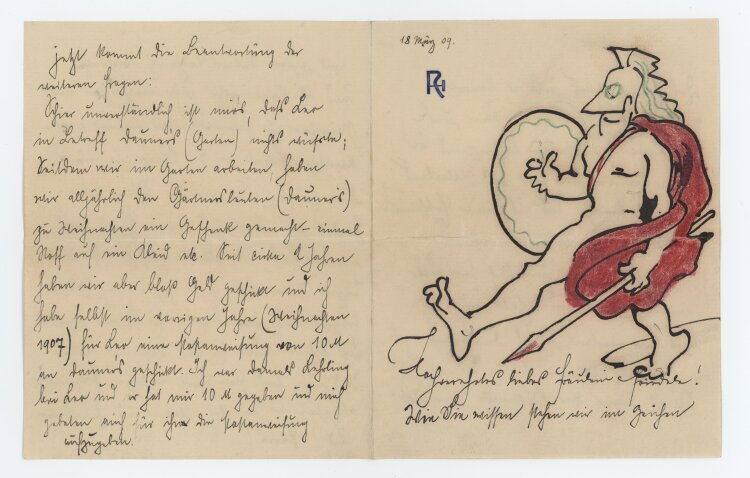 jetzt kommt die Beantwortung der
weiteren Fragen:
Schier unverständlich ist mir's, daß Leo
in Betreff Dauner's (Garten) nichts wüsste;
Seitdem wir im Garten arbeiten, haben
wir alljährlich den Gärtnersleuten (Dauner's)
zu Weihnachten ein Geschenk gemacht - einmal
Stoff auf ein Kleid etc. Seit cirka 2 Jahren
haben wir aber bloß Geld geschickt und ich
habe selbst im vorigen Jahre (Weihnachten
1907) für Leo eine Postanweisung von 10 M
an Dauner's geschickt. Ich war damals Lehrling
bei Leo und er hat mir 10 M gegeben und mich
gebeten auch für ihn die Postanweisung
aufzugeben.
18 März 09.
Hochverehrtes liebes Fräulein !
Wie Sie wissen stehen wir im Zeichen